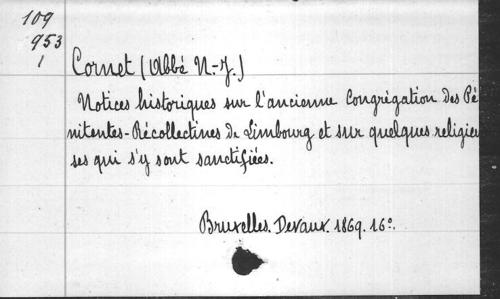 109
953
1
Cornet (Abbé N.-J.)
Notices historiques sur l'ancienne Congrégation des Pé
nitentes-Récollectines de Limbourg et sur quelques religieu
ses qui s'y sont sanctifiées.
Bruxelles. Devaux. 1869. 16°.